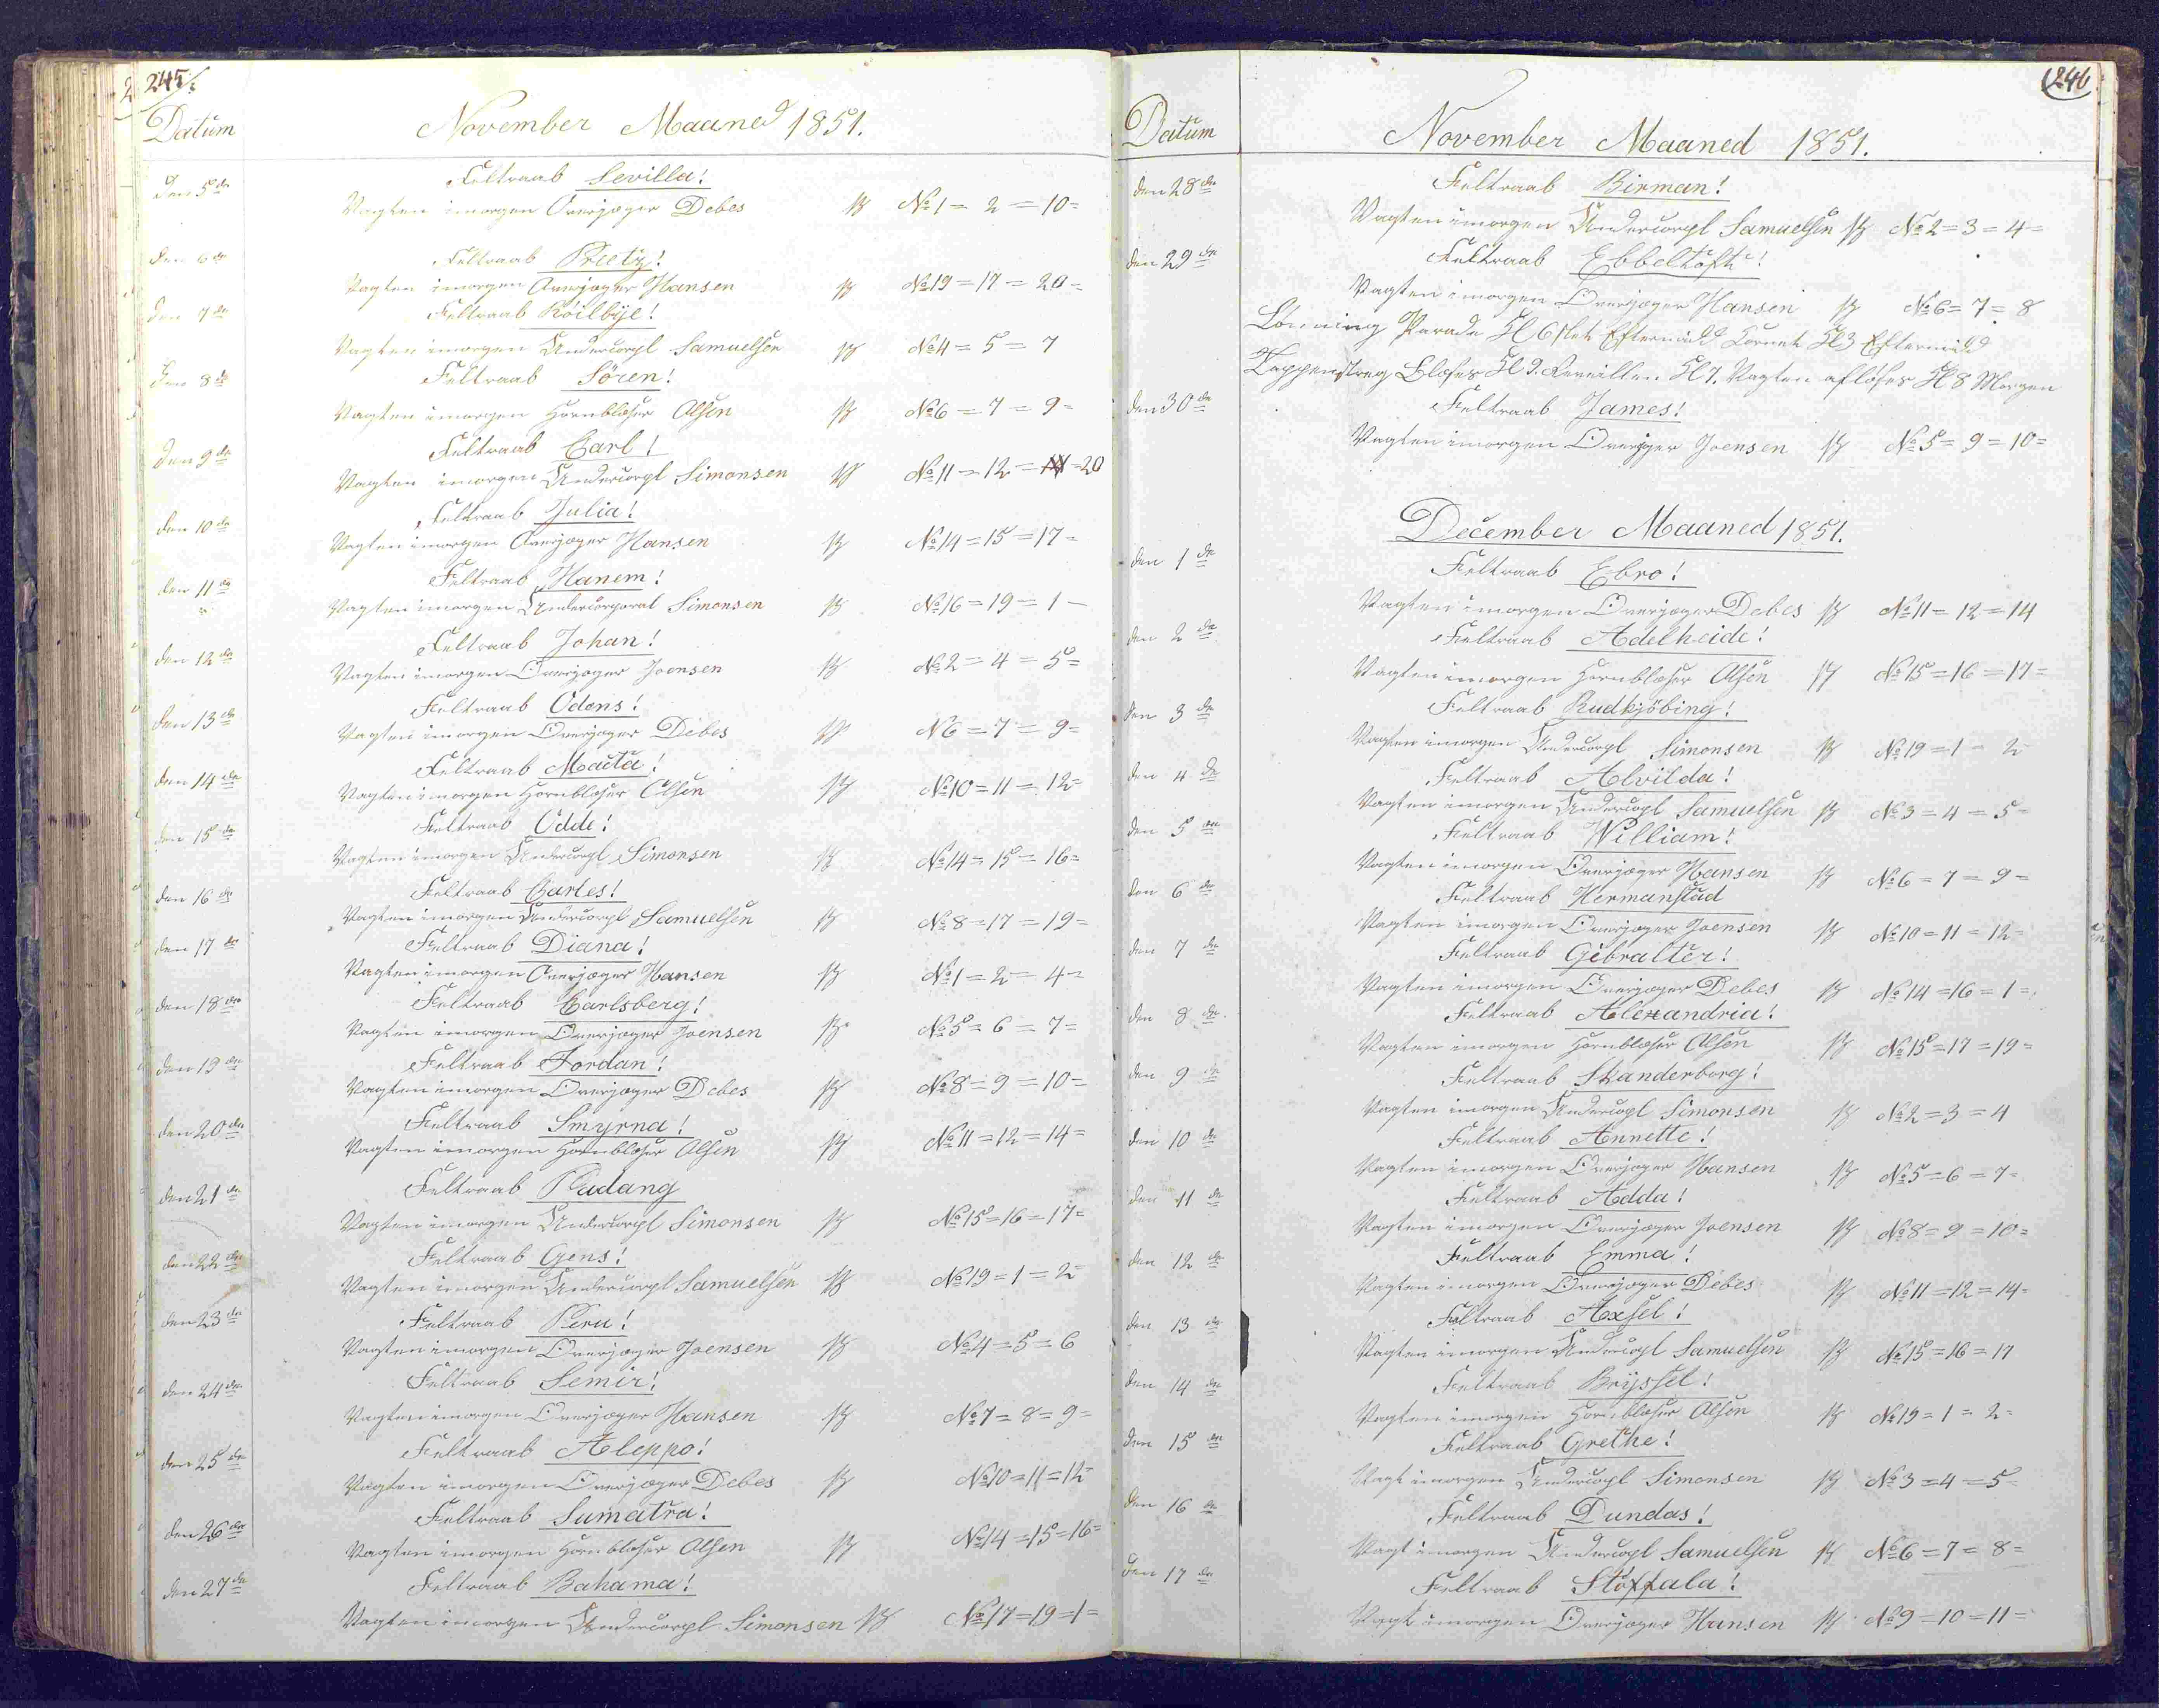 245.
Datum
November Maaned 1851.
Den 5de
Feltraab Sevilla!
Vagten imorgen Overjæger Debes pp No 1 = 2 = 10 =
Den 6de
Feltraab Pretz!
Vagten imorgen Overjæger Hansen pp No 19 = 17 = 20 =
Den 7de
Feltraab Röilbye!
Vagten imorgen Undercorpl Samuelsen pp No 4 = 5 = 7
Den 8de
Feltraab Sören!
Vagten imorgen Hornblæser Olsen pp No 6 = 7 = 9 =
Den 9de
Feltraab Carl!
Vagten imorgen Undercorpl Simonsen pp No 11 = 12 = 20
Den 10de
Feltraab Julia!
Vagten imorgen Overjæger Hansen pp No 14 = 15 = 17 =
Den 11de
Feltraab Hanem!
Vagten imorgen Undercorporal Simonsen pp No 16 = 19 = 1 —
Den 12de
Feltraab Johan!
Vagten imorgen Overjæger Joensen pp No 2 = 4 = 5 =
Den 13de
Feltraab Odens!
Vagten imorgen Overjæger Debes pp No 6 = 7 = 9 =
Den 14de
Feltraab Macta!
Vagten imorgen Hornblæser Olsen pp No 10 = 11 = 12 =
Den 15de
Feltraab Odde!
Vagten imorgen Undercorpl Simonsen pp No 14 = 15 = 16 =
Den 16de
Feltraab Carles!
Vagten imorgen Undercorpl Samuelsen pp No 8 = 17 = 19 =
Den 17de
Feltraab Diana!
Vagten imorgen Overjæger Hansen pp No 1 = 2 = 4 =
Den 18de
Feltraab Carlsberg!
Vagten imorgen Overjæger Joensen pp No 5 = 6 = 7 =
Den 19de
Feltraab Jordan!
Vagten imorgen Overjæger Debes pp No 8 = 9 = 10 =
Den 20de
Feltraab Smyrna!
Vagten imorgen Hornblæser Olsen pp No 11 = 12 = 14 =
Den 21de
Feltraab Padang
Vagten imorgen Undercorpl Simonsen pp No 15 = 16 = 17 =
Den 22de
Feltraab Gens!
Vagten imorgen Undercorpl Samuelsen pp No 19 = 1 = 2 =
Den 23de
Feltraab Peru!
Vagten imorgen Overjæger Joensen pp No 4 = 5 = 6
Den 24de
Feltraab Semir!
Vagten imorgen Overjæger Hansen pp No 7 = 8 = 9 =
Den 25de
Feltraab Aleppo!
Vagten imorgen Overjæger Debes pp No 10 = 11 = 12 =
Den 26de
Feltraab Sumatra!
Vagten imorgen Hornblæser Olsen pp No 14 = 15 = 16 =
Den 27de
Feltraab Bahama!
Vagten imorgen Undercorpl Simonsen pp No 17 = 19 = 1 =
246
Datum
November Maaned 1851.
Den 28de
Feltraab Birman!
Vagten imorgen Undercorpl Samuelsen pp No 2 = 3 = 4 =
Den 29de
Feltraab Ebbeltoft!
Vagten imorgen Overjæger Hansen pp No 6 = 7 = 8
Lønning Parade Kl 6 Eftermidd Kl 3 Eftermidd
Tappenstreg Blæses Kl 9. Reveillen Kl 7. Vagten afløses Kl 8 Morgen
Den 30de
Feltraab James!
Vagten imorgen Overjæger Joensen pp No 5 = 9 = 10 =
December Maaned 1851.
Den 1de
Feltraab Ebro!
Vagten imorgen Overjæger Debes pp No 11 = 12 = 14
Den 2de
Feltraab Adelheide!
Vagten imorgen Hornblæser Olsen pp No 15 = 16 = 17 =
Den 3de
Feltraab Rudkjöbing!
Vagten imorgen Undercorpl Simonsen pp No 19 = 1 = 2
Den 4de
Feltraab Alvilda!
Vagten imorgen Undercopl Samuelsen pp No 3 = 4 = 5 =
Den 5de
Feltraab William!
Vagten imorgen Overjæger Hansen pp No 6 = 7 = 9 =
Den 6de
Feltraab Hermanstad
Vagten imorgen Overjæger Joensen pp No 10 = 11 = 12 =
Den 7de
Feltraab Gibralter!
Vagten imorgen Overjæger Debes pp No 14 = 16 = 1 =
Den 8de
Feltraab Alexandria!
Vagten imorgen Hornblæser Olsen pp No 15 = 17 = 19 =
Den 9de
Feltraab Skanderborg!
Vagten imorgen Undercopl Simonsen pp No 2 = 3 = 4
Den 10de
Feltraab Annette!
Vagten imorgen Overjæger Hansen pp No 5 = 6 = 7 =
Den 11de
Feltraab Adda!
Vagten imorgen Overjæger Joensen pp No 8 = 9 = 10 =
Den 12de
Feltraab Emma!
Vagten imorgen Overjæger Debes pp No 11 = 12 = 14 =
Den 13de
Feltraab Axsel!
Vagten imorgen Undercopl Samuelsen pp No 15 = 16 = 17
Den 14de
Feltraab Bryssel!
Vagten imorgen Hornblæser Olsen pp No 19 = 1 = 2 =
Den 15de
Feltraab Grethe!
Vagt imorgen Undercopl Simonsen pp No 3 = 4 = 5 =
Den 16de
Feltraab Dundas!
Vagt imorgen Undercopl Samuelsen pp No 6 = 7 = 8 =
Den 17de
Feltraab Stoffala!
Vagt imorgen Overjæger Hansen pp No 9 = 10 = 11 =